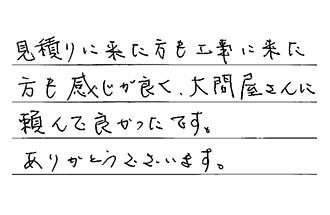 見積りに来た方も工事に来た
方も感じが良く、大問屋さんに
頼んで良かったです。
ありがとうございます。